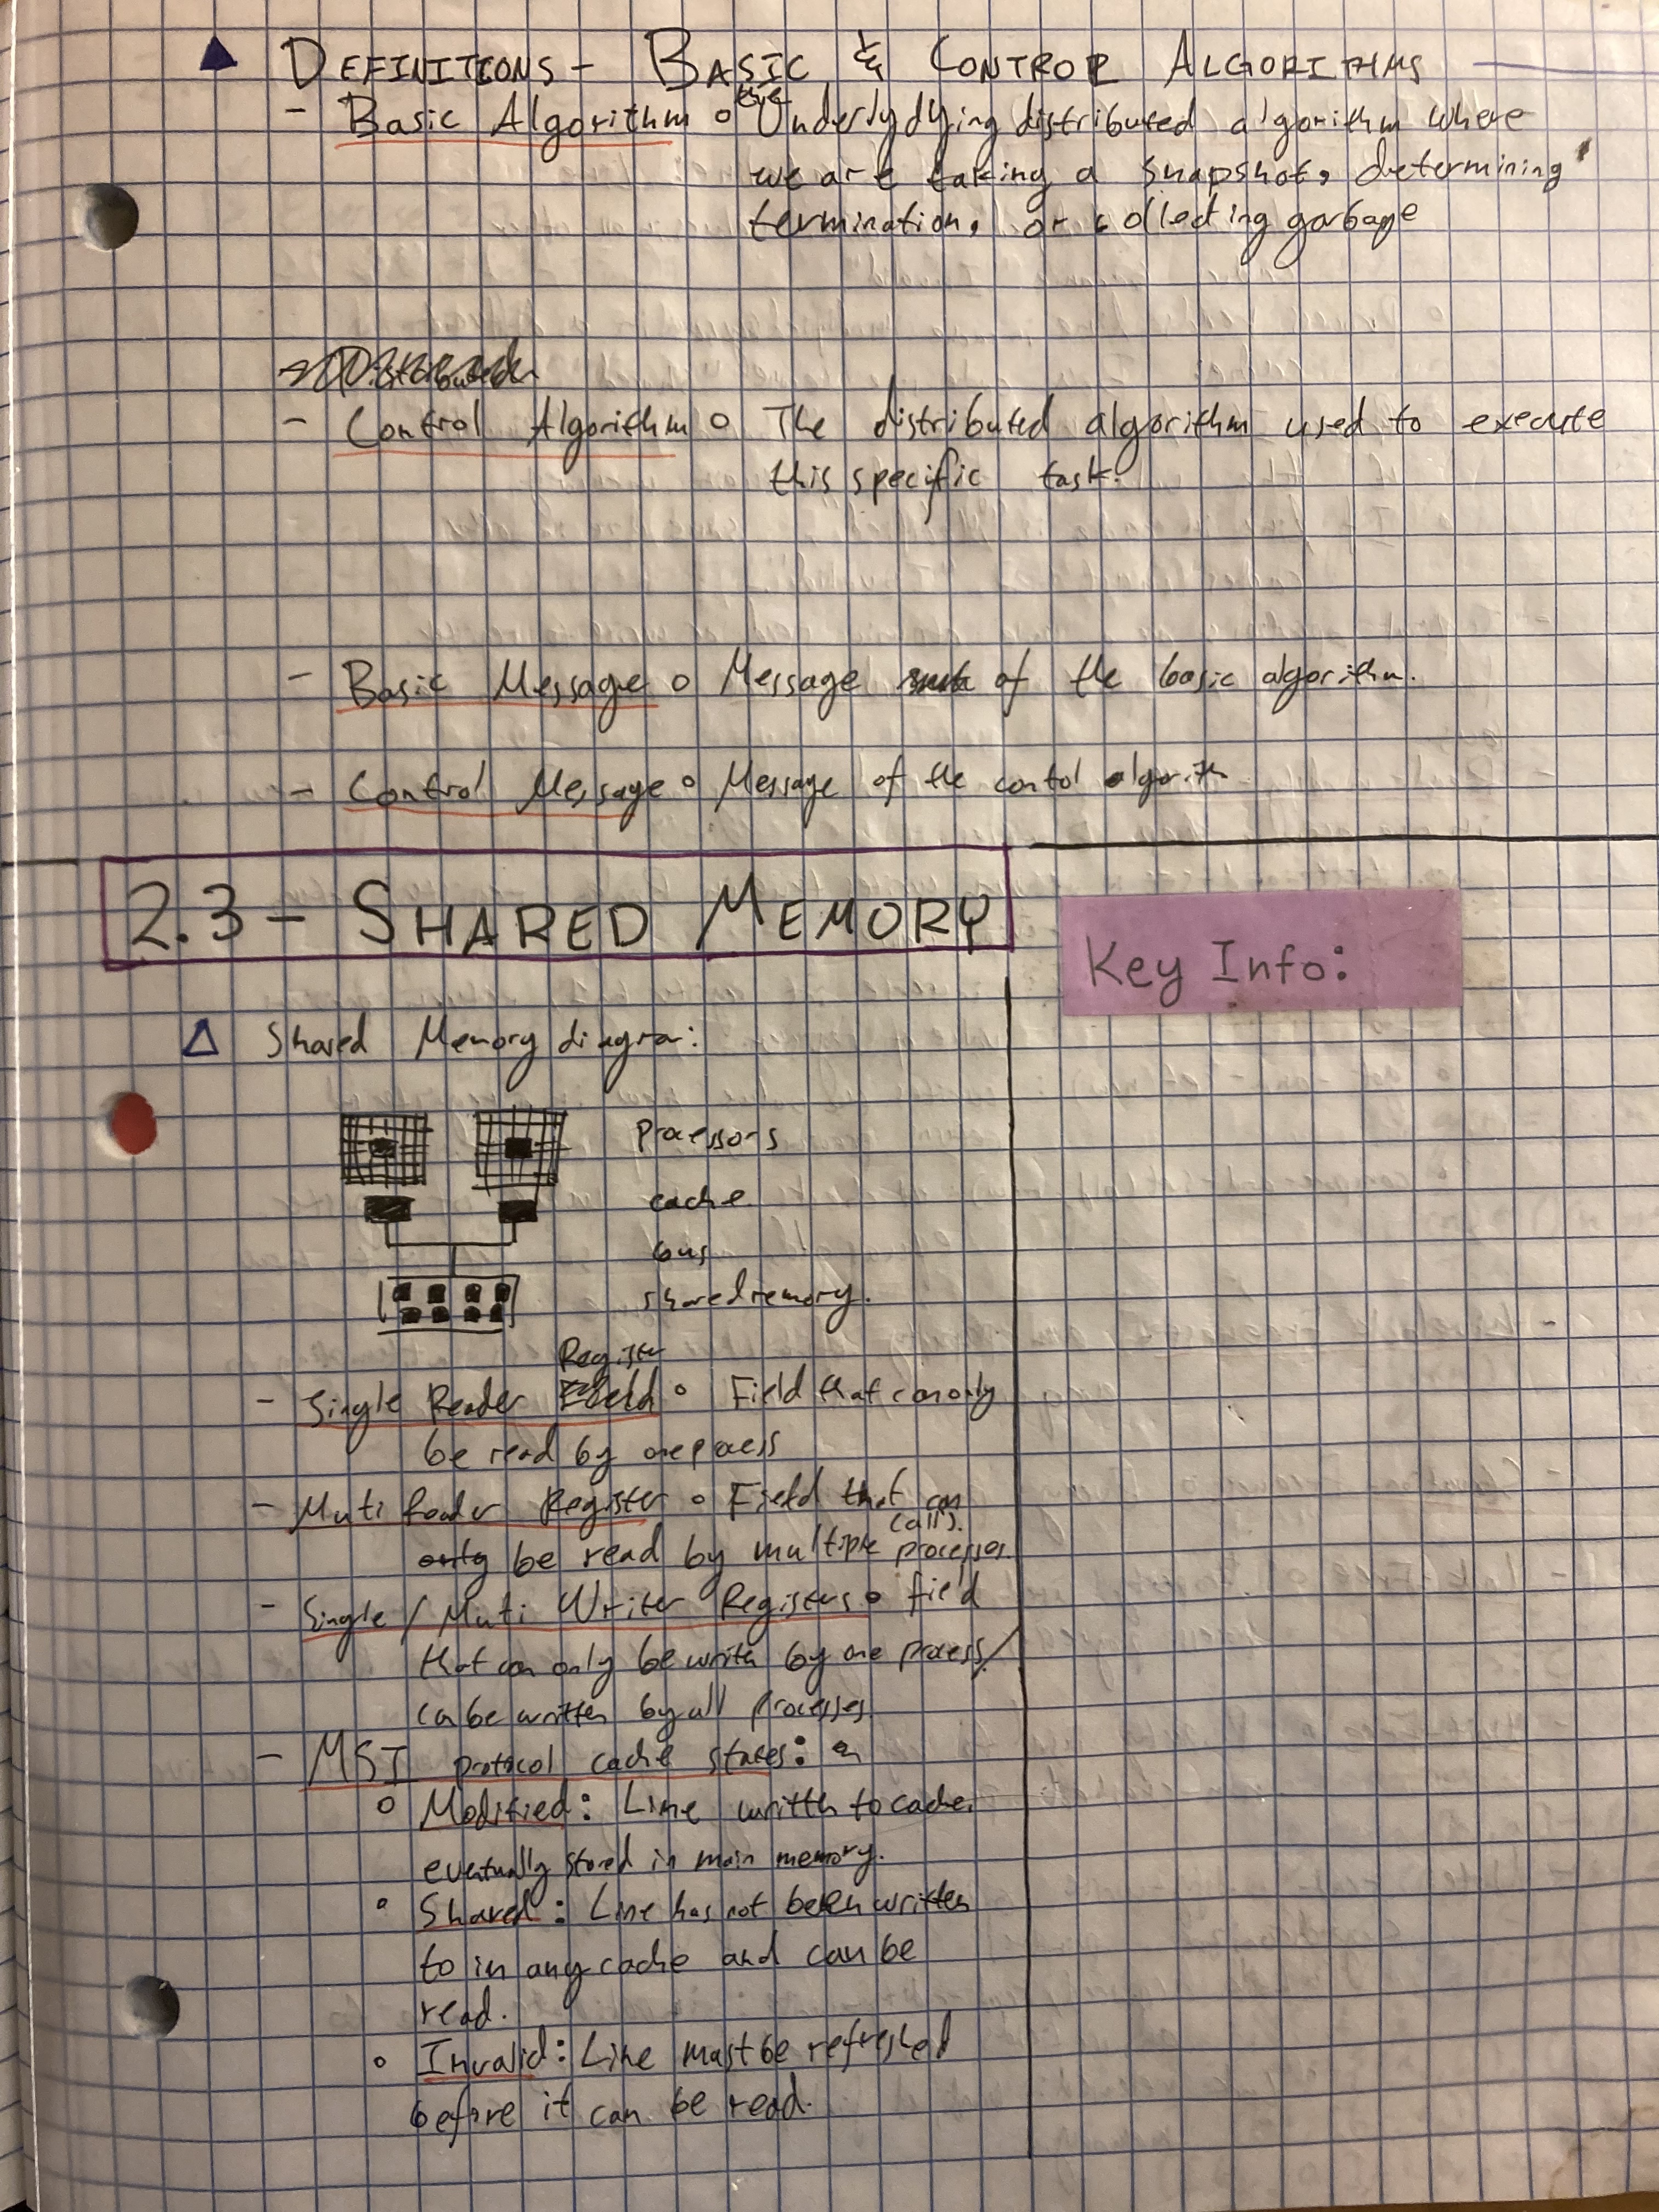 DEFINITIONS - BASIC & CONTROL ALGORITHMS
- Basic Algorithm o Underlydying distributed algorithm where
we are taking a snapshot, determining
termination, or collecting garbage
- Control Algorithm o The distributed algorithm used to execute
this specific task.
- Basic Message o Message of the basic algorithm.
- Control Message o Message of the contol algorith
2.3 - SHARED MEMORY
Key Info:
Shared Memory diagram:
processors
cache
bus
shared memory.
Register
- Single Reader Field o Field that can only
be read by one process
- Multi Reader Register o Field that can
(all).
only be read by multiple processes.
- Single / Multi Writer Registers o field
that can only be writn by one process/
can be written by all processes
- MSI protocol cache states:
o Modified: Line written to cache,
eventually stored in main memory.
o Shared: Line has not been written
to in any cache and can be
read.
o Invalid: Line must be refreshed
before it can be read.